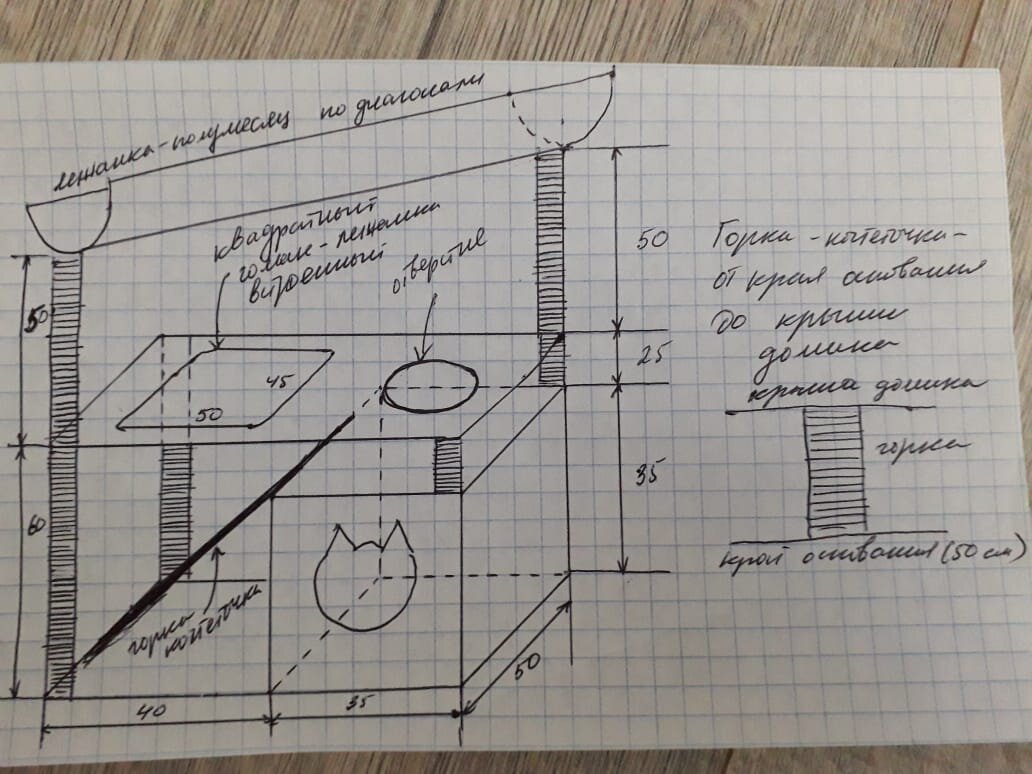 лежанка-полумесяц по диагонали
квадратный
гамак-лежанка
встроенный
отверстие
50
60
50
25
35
45
50
Горка-когтеточка-
от края основания
до крыши
домика
крыша домика
горка
край основания (50 см)
горка
когтеточка
40
35
50